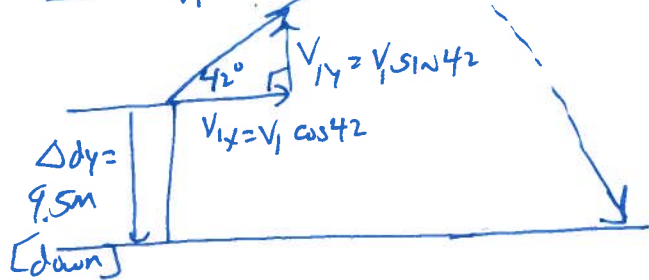 42°
V1y = V1 sin 42
V1x = V1 cos 42
Δdy =
9.5m
[down]